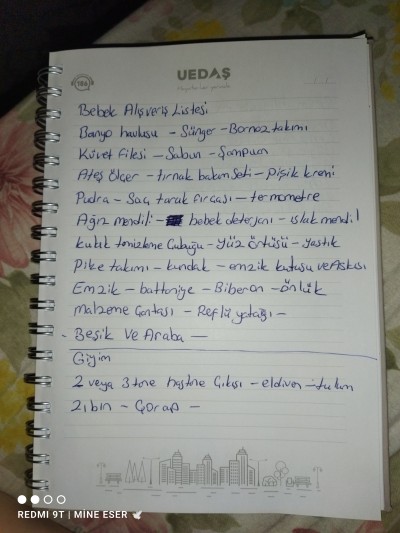 186
UEDAŞ
Bebek Alışveriş Listesi
Banyo havlusu - Sünger - Bornoz takımı
Küvet filesi - Sabun - Şampuan
Ateş ölçer - tırnak bakım Seti - Pişik kremi
Pudra - Saç tarak fırçası - termometre
Ağız mendili - bebek deterjanı - ıslak mendil
kulak temizleme Çubuğu - Yüz Örtüsü - Yastık
Pike takımı - kundak - emzik kutusu ve Askısı
Emzik - battaniye - Biberon - önlük
malzeme Çantası - Reflü yatağı -
- Beşik Ve Araba -
Giyim
2 veya 3 tane hastane Çıkışı - eldiven - tulum
Zıbın - Çorap -
UEDAŞ
REDMI 9T | MİNE ESER